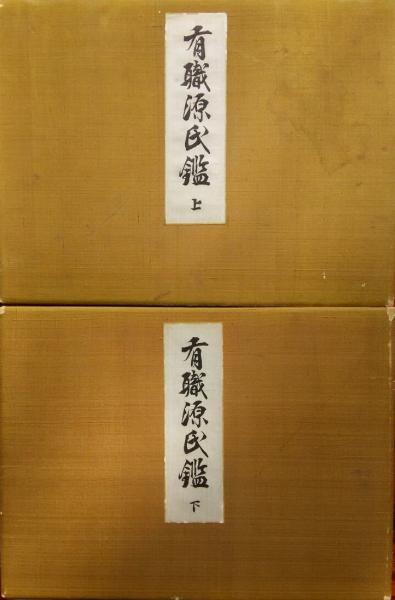 有職源氏鑑
上
有職源氏鑑
下